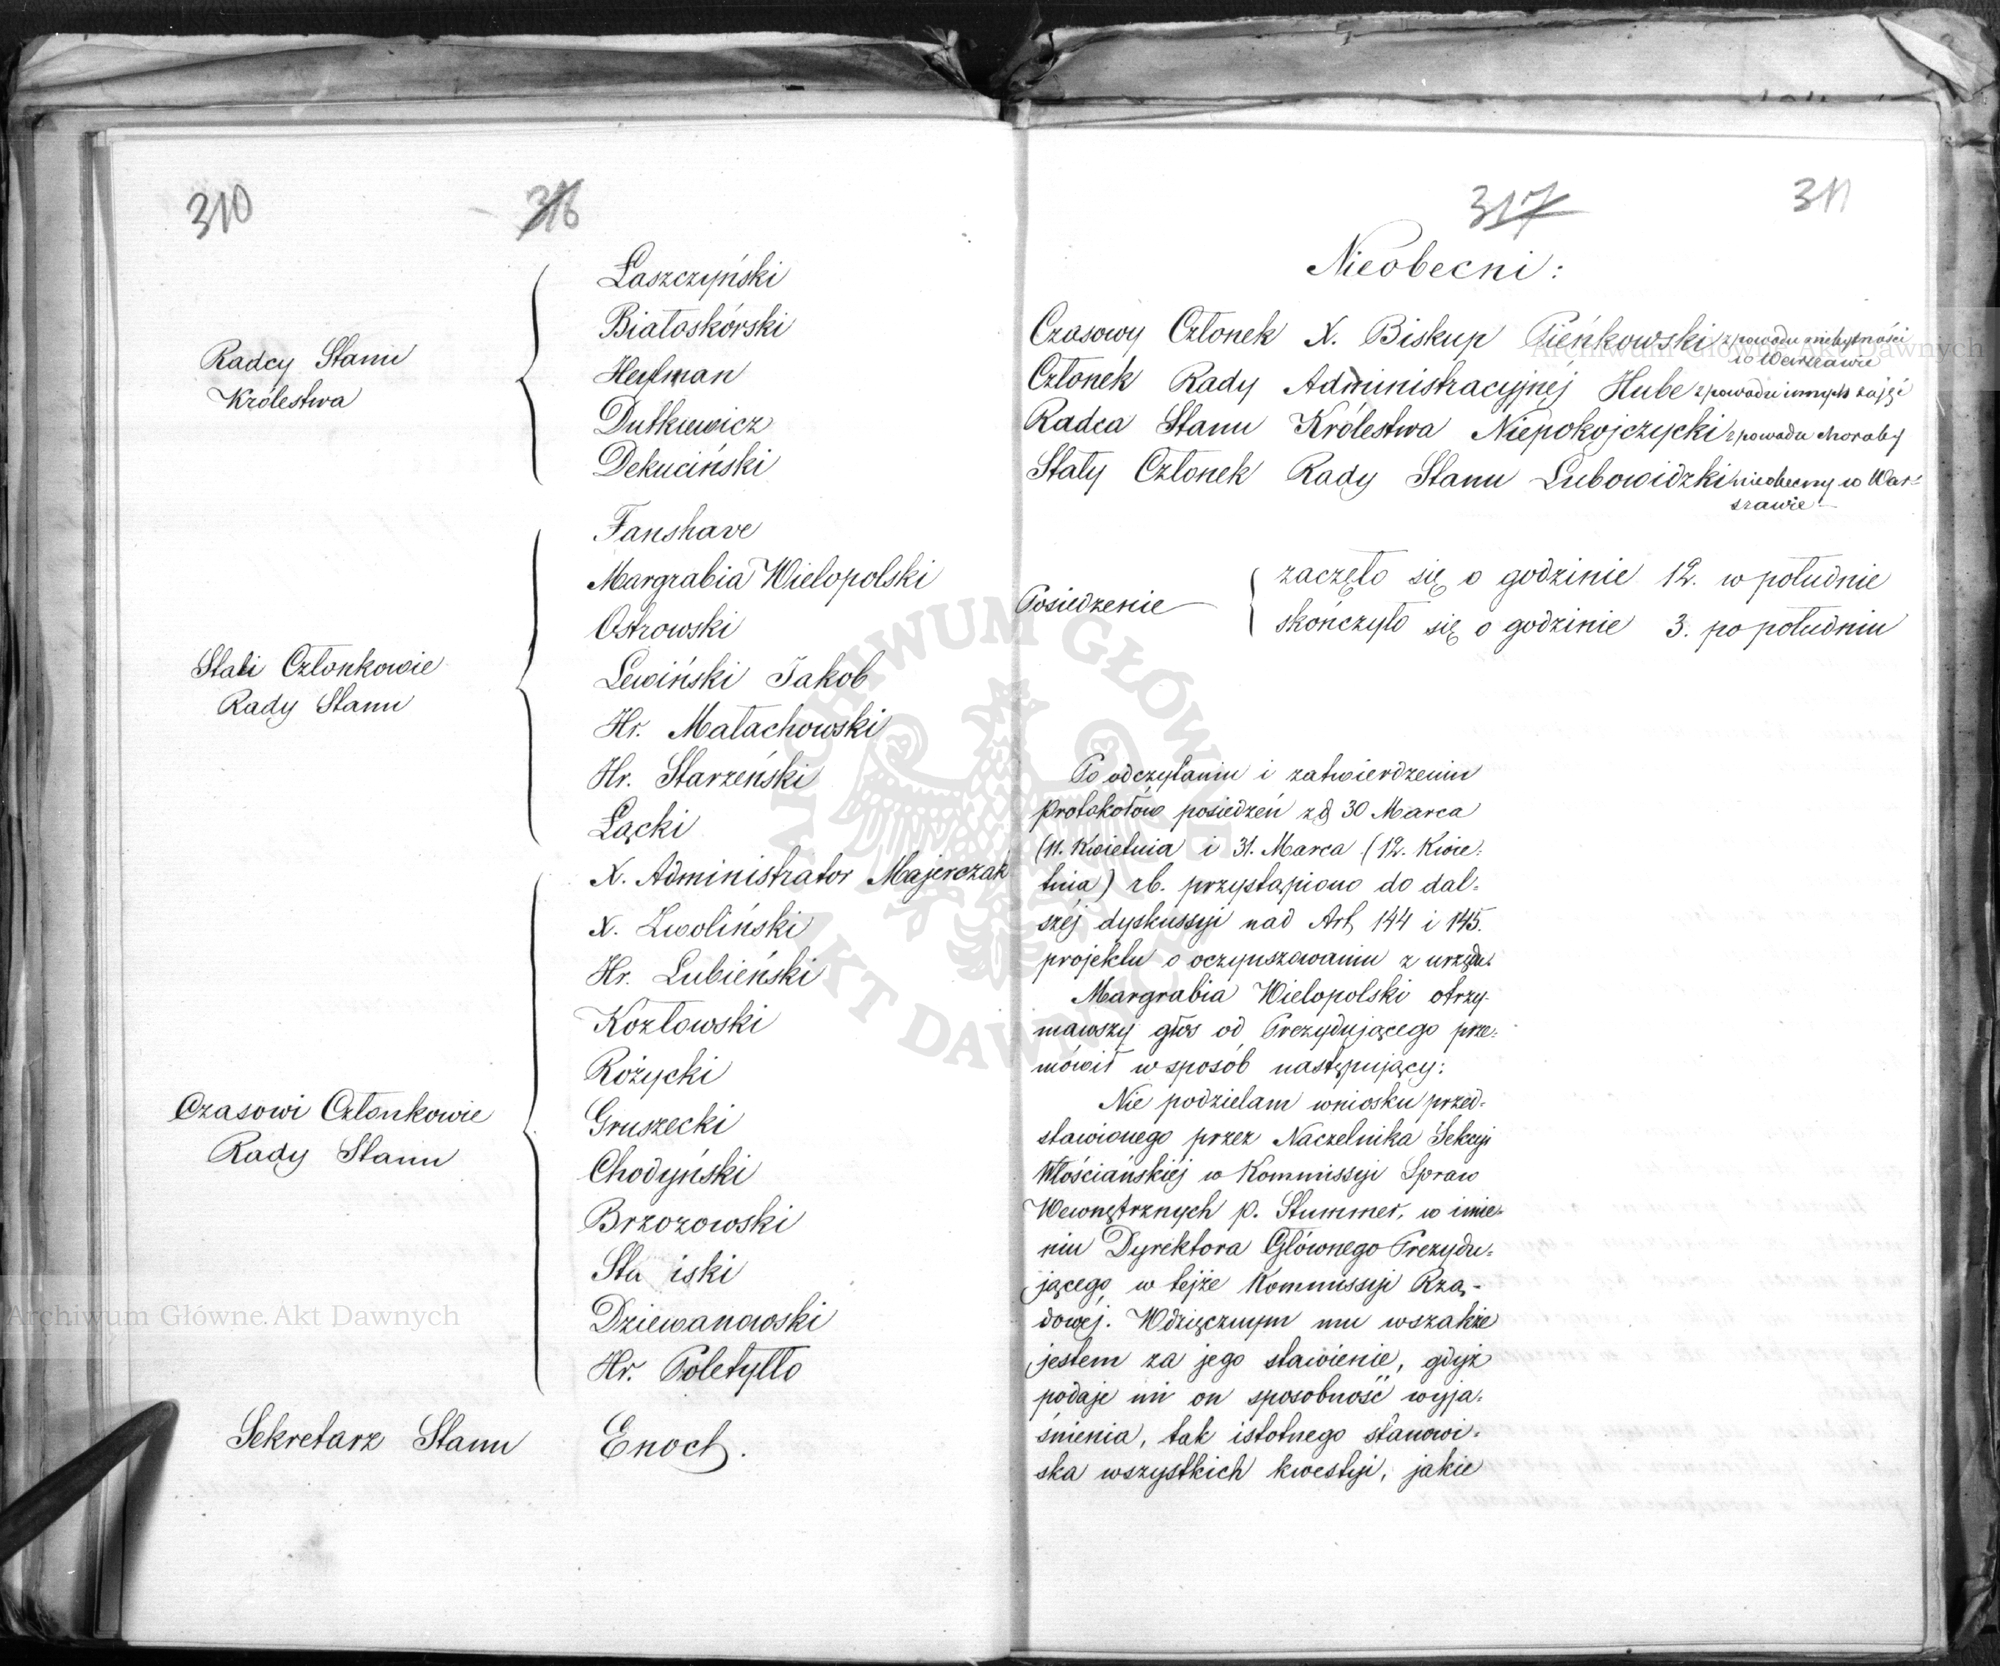 310
316
Radcy Stanu
Królestwa
Łaszczyński
Białoskórski
Heylman
Dutkiewicz
Dekuciński
Stali Członkowie
Rady Stanu
Fanshave
Margrabia Wielopolski
Ostrowski
Lewiński Jakob
Hr. Małachowski
Hr. Starzeński
Łącki
Czasowi Członkowie
Rady Stanu
X. Administrator Majerczak
X. Zwoliński
Hr. Lubieński
Kozłowski
Różycki
Gruszecki
Chodyński
Brzozowski
Sta iski
Dziewanowski
Hr. Poletyłło
Sekretarz Stanu Enoch.
317
311
Nieobecni:
Czasowy Członek X. Biskup Pieńkowski z powodu niebytności
w Warszawie
Członek Rady Administracyjnéj Hube z powodu innych zajęć
Radca Stanu Królestwa Niepokojczycki z powodu choroby
Stały Członek Rady Stanu Lubowidzki nieobecny w War-
szawie
Posiedzenie
zaczęło się o godzinie 12. w południe
skończyło się o godzinie 3. po południu
Po odczytaniu i zatwierdzeniu
protokołów posiedzeń z d 30 Marca
(11. Kwietnia i 31. Marca (12. Kwie-
tnia) rb. przystąpiono do dal-
széj dyskussyi nad Art 144 i 145.
projektu o oczynszowaniu z urzędu.
Margrabia Wielopolski otrzy-
mawszy głos od Prezydującego prze-
mówił w sposób następujący:
Nie podzielam wniosku przed-
stawionego przez Naczelnika Sekcyi
Włościańskiéj w Kommissyi Spraw
Wewnętrznych p. Stummer, w imie-
niu Dyrektora Głównego Prezydu-
jącego w tejże Kommissyi Rzą-
dowéj. Wdzięcznym mu wszakże
jestem za jego stawienie, gdyż
podaje mi on sposobność wyja-
śnienia, tak istotnego stanowi-
ska wszystkich kwestyi, jakie
ARCHIWUM GŁÓWNE AKT DAWNYCH
Archiwum Główne Akt Dawnych
Archiwum Główne Akt Dawnych